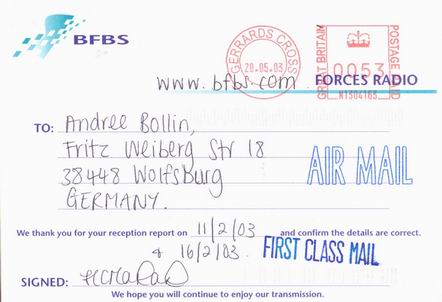 BFBS
GERRARDS CROSS
20.05.03
GREAT BRITAIN
0053
POSTAGE PAID
www.bfbs.com FORCES RADIO
TO: Andree Bollin,
Fritz Weiberg Str 18
38448 Wolfsburg
GERMANY.
AIR MAIL
We thank you for your reception report on 11/2/03 and confirm the details are correct.
& 16/2/03.
FIRST CLASS MAIL
SIGNED:
We hope you will continue to enjoy our transmission.